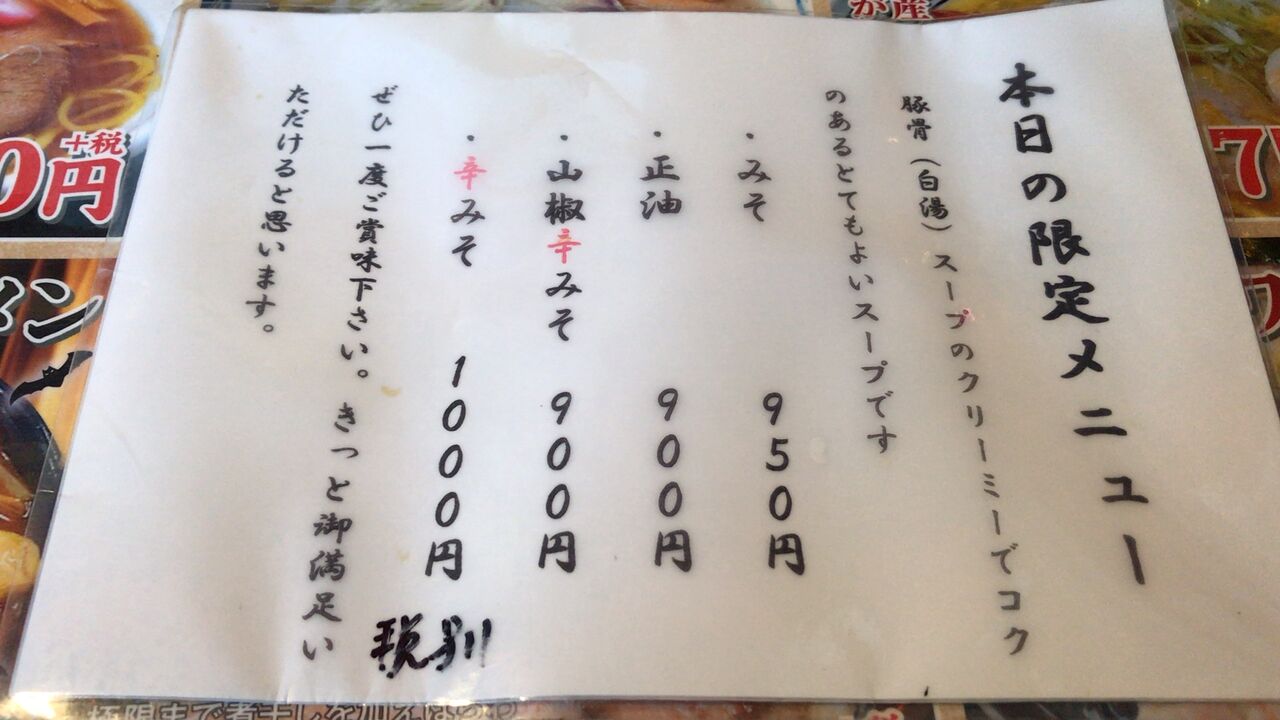 本日の限定メニュー
豚骨（白湯）スープのクリーミーでコク
のあるとてもよいスープです
・みそ　950円
・正油　900円
・山椒辛みそ　900円
・辛みそ　1000円
税別
ぜひ一度ご賞味下さい。きっと御満足い
ただけると思います。
が産
7
0円
+税
メン
極限まで煮干しを加え